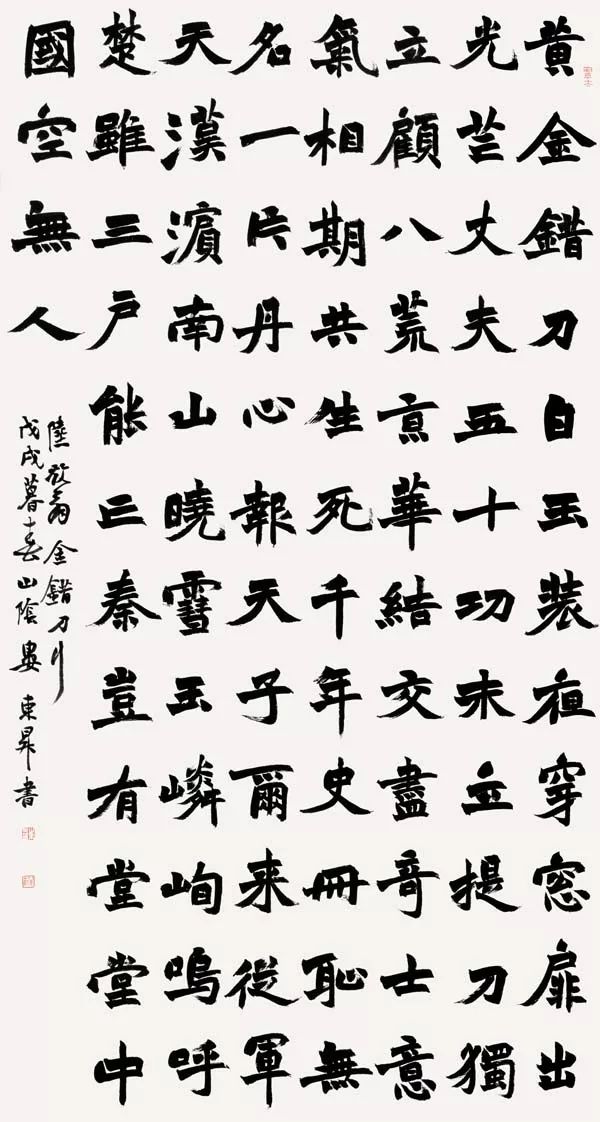 黄金錯刀白玉装夜穿窓扉出
光芒丈夫五十功未立提刀獨
立顧八荒京華結交盡奇士意
氣相期共生死千年史冊恥無
名一片丹心報天子爾来從軍
天漢濱南山曉雪玉嶙峋嗚呼
楚雖三户能亡秦豈有堂堂中
國空無人
陸放翁金錯刀行
戊戌暮春山陰婁東昇書